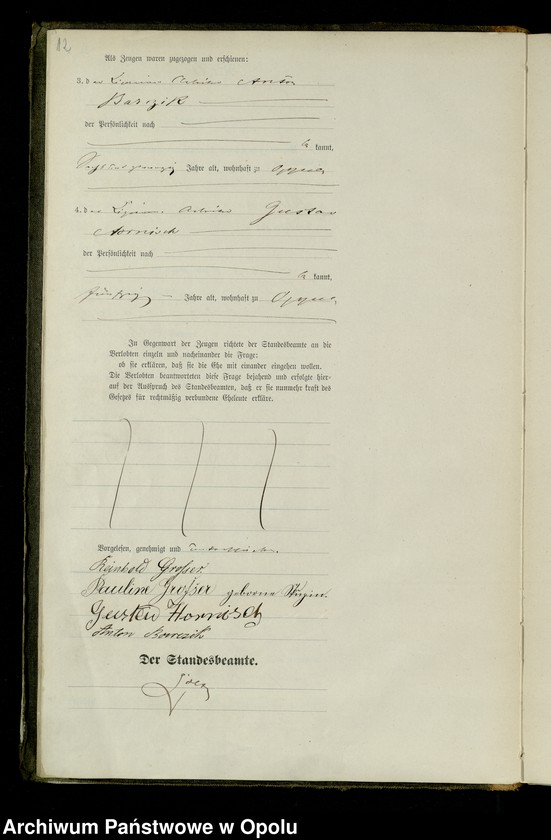 12
Als Zeugen waren zugezogen und erschienen:
3. der Zigarren Arbeiter Anton
der Persönlichkeit nach
kannt,
Jahre alt, wohnhaft zu Oppeln
4. der Zigarren Arbeiter Gustav
Hornisch
der Persönlichkeit nach
kannt,
fünfzig Jahre alt, wohnhaft zu Oppeln
In Gegenwart der Zeugen richtete der Standesbeamte an die
Verlobten einzeln und nacheinander die Frage:
ob sie erklären, daß sie die Ehe mit einander eingehen wollen.
Die Verlobten beantworteten diese Frage bejahend und erfolgte hier-
auf der Ausspruch des Standesbeamten, daß er sie nunmehr kraft des
Gesetzes für rechtmäßig verbundene Eheleute erkläre.
Vorgelesen, genehmigt und unterschrieben.
Reinhold Großer.
Pauline Großer geborene
Gustav Hornisch
Anton
Der Standesbeamte.
Archiwum Państwowe w Opolu